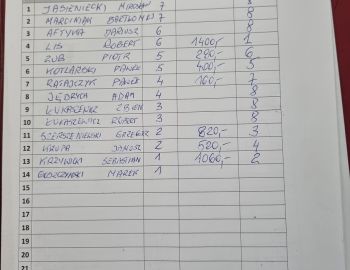 1 JASIENIECKI MIROSŁAW 7 8
2 MARCINIAK BARTŁOMIEJ 7 8
3 AFTYKA DARIUSZ 6 8
4 LIS ROBERT 6 1400,- 1
5 ZUB PIOTR 5 290,- 6
6 KOTLARSKI PAWEŁ 5 400,- 5
7 RATAJCZYK PAWEŁ 4 160,- 7
8 JĘDRYCH ADAM 4 8
9 ŁUKASZEWICZ ZBIGN 3 8
10 ŁUKASZEWICZ ROBERT 3 8
11 GRZEGORZ 2 820,- 3
12 KRUPA JANUSZ 2 520,- 4
13 KRZYWICKI SEBASTIAN 1 1060,- 2
14 MAREK 1
15
16
17
18
19
20
21